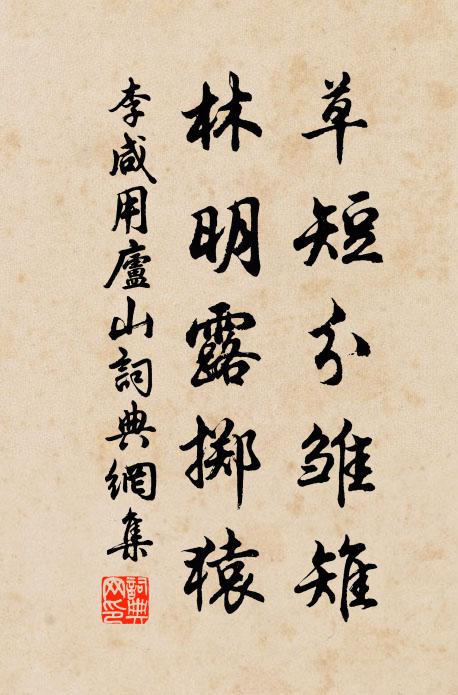 草短分雛雉
林明露擲猿
李咸用廬山詞典網集
詞典網印